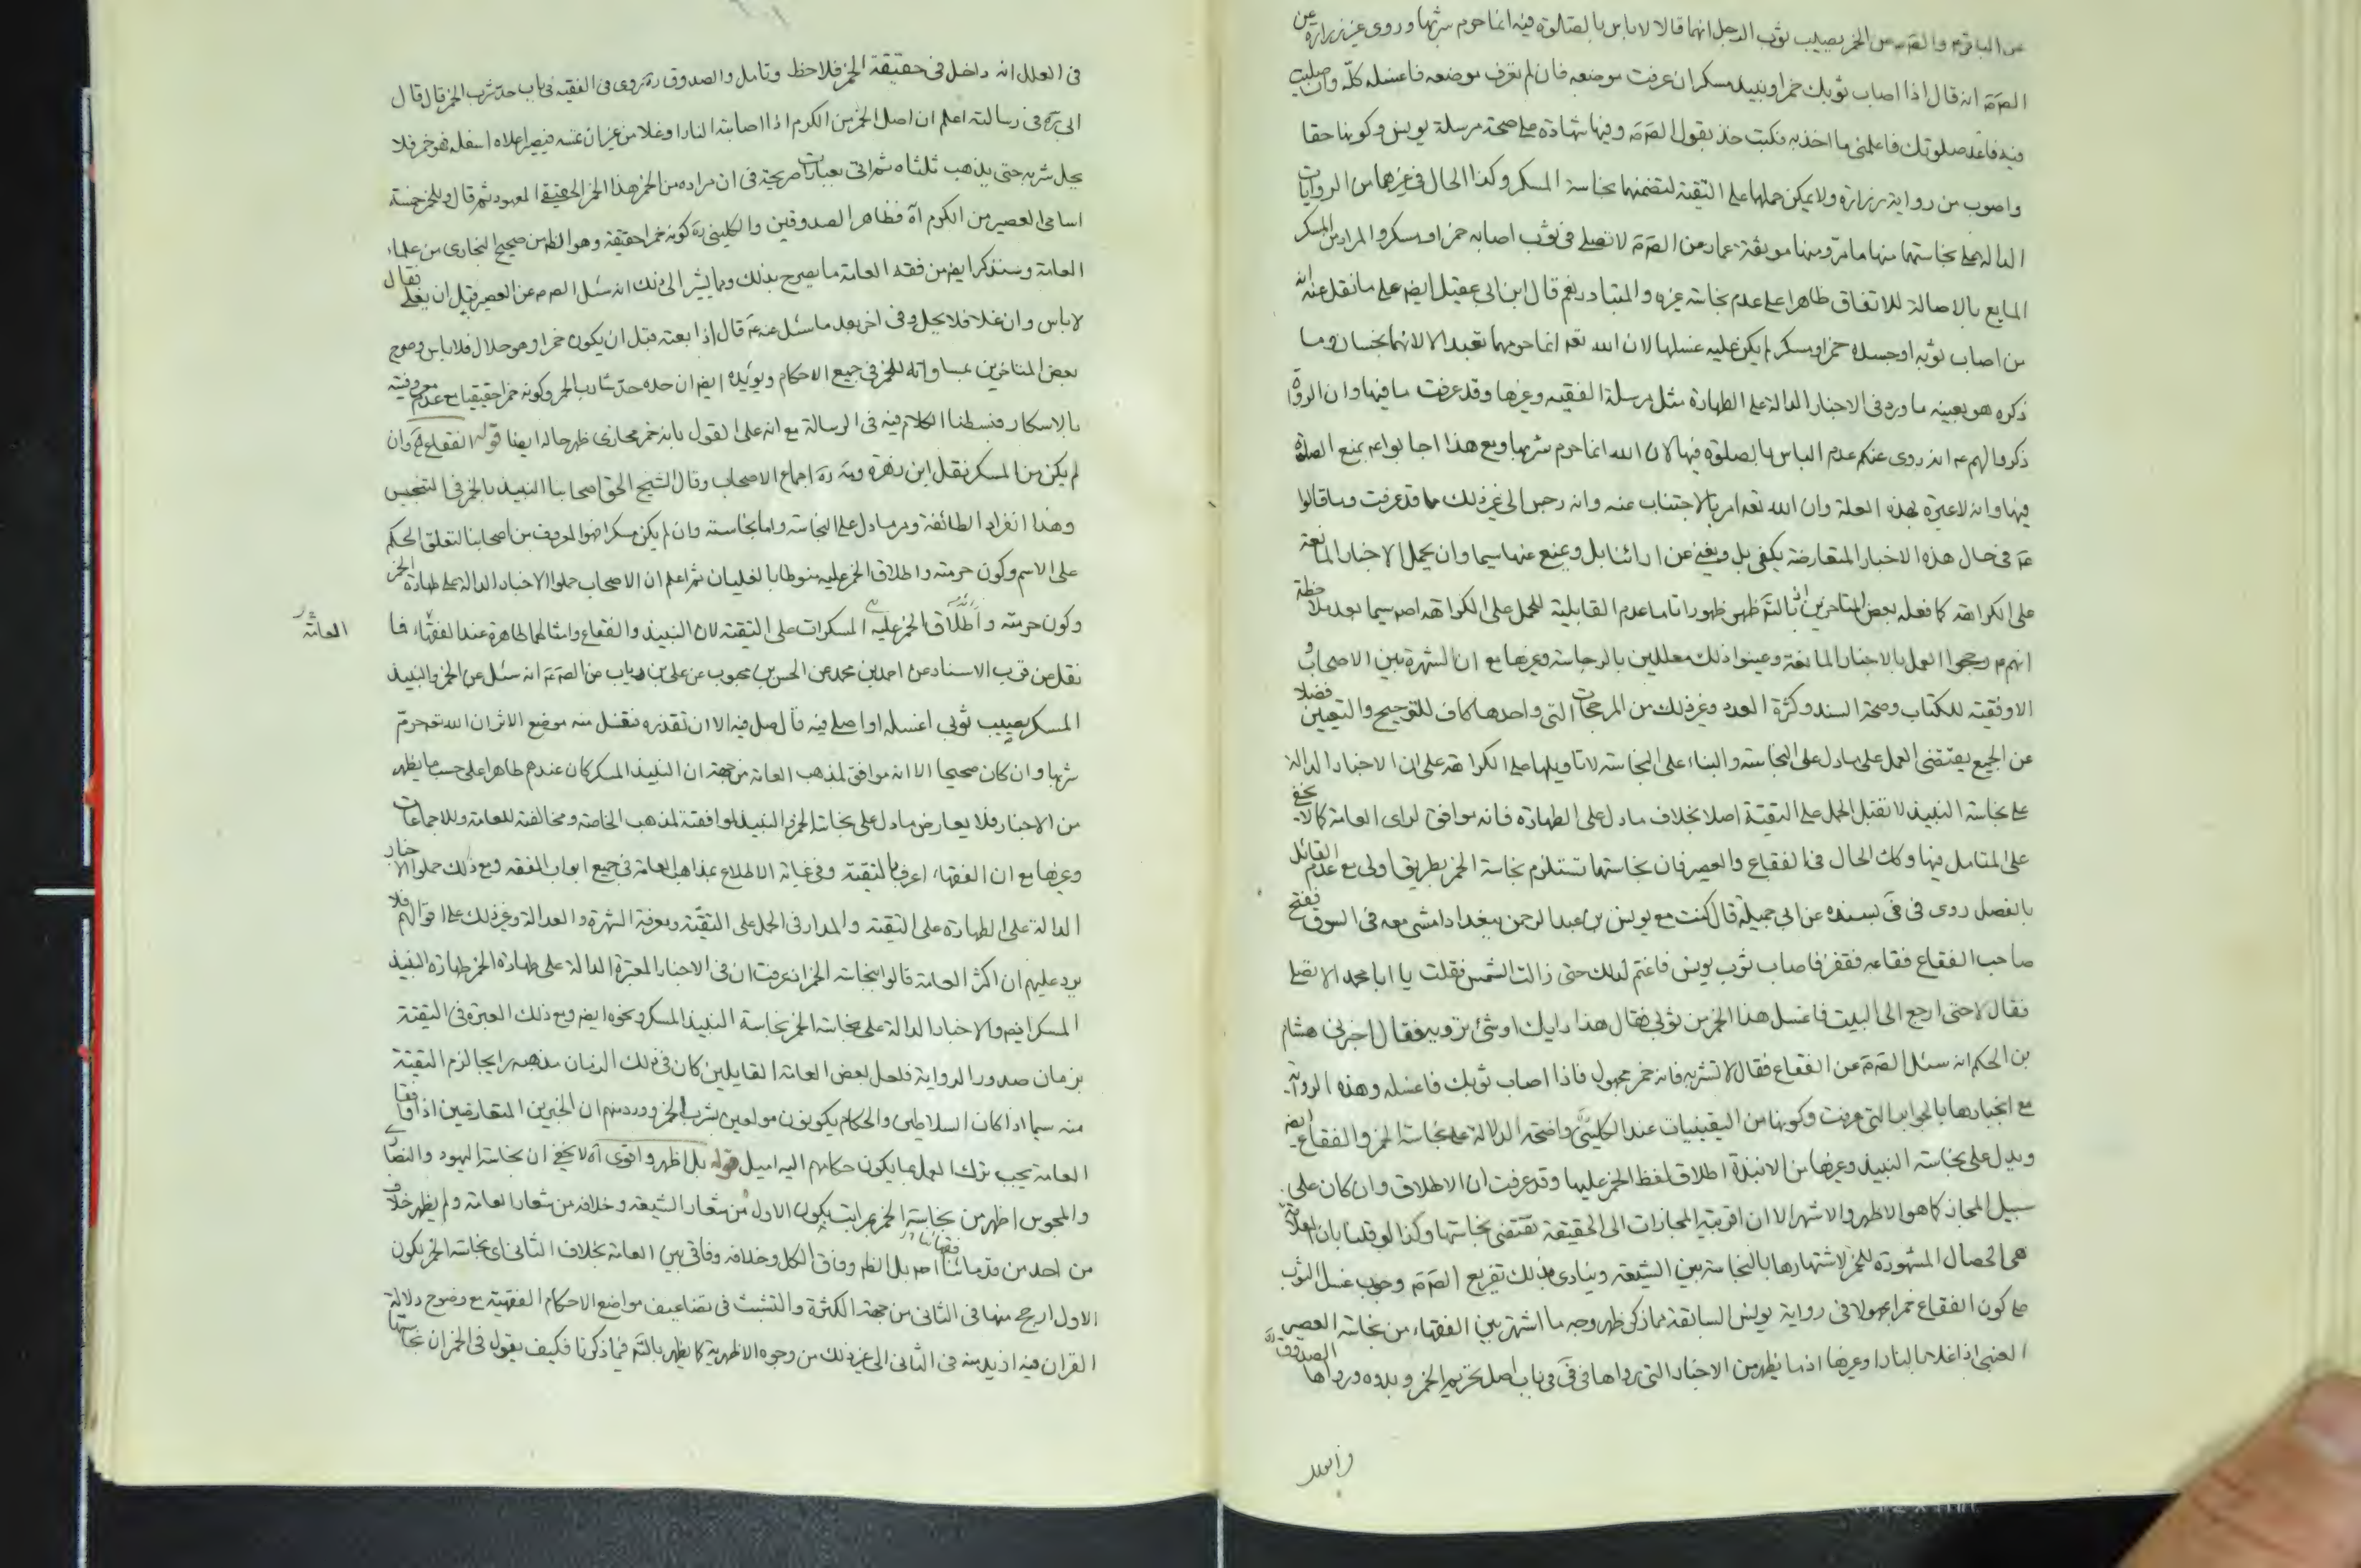 عن الباقر والصادق عن الخمر يصيب ثوب الرجل انهما قالا لا باس بالصلوة فيه انما حرم شربها وروى عن زرارة عن
الصّ انه قال اذا اصاب ثوبك خمر او نبيذ مسكر ان عرفت موضعه فان لم تعرف موضعه فاغسله كلّه وان صليت
فيه فاعد صلوتك فاعلمنى ما اخذ به فكتب خذ بقول الصّ وفيها شهادة على صحة مرسلة يونس وكونها حقا
واصوب من رواية زرارة ولا يمكن حملها على التقية لتضمنها نجاسة المسكر وكذا الحال فى غيرها من الروايات
الدالة على نجاستهما منها ما مرّ ومنها موثقة عمار من الصّ لا تصلى فى ثوب اصابه خمر او مسكر والمراد من المسكر
المايع بالاصالة للاتفاق ظاهرا على عدم نجاسة غيره والمتبادر نعم قال ابن ابى عقيل ايض على ما نقل عنه انه
من اصاب ثوبه او جسده خمر او مسكر لم يكن عليه غسلها لان الله تعه انما حرمهما تعبدا لا لانهما نجسان وما
ذكره هو بعينه ما ورد فى الاخبار الدالة على الطهارة مثل مرسلة الفقيه وغيرها وقد عرفت ما فيها وان الرواة
ذكروا لهم عه انه روى عنكم عدم الباس بالصلوة فيها لان الله انما حرم شربها ومع هذا اجابوا عه بمنع الصلوة
فيها وانه لا عبرة بهذه العلة وان الله تعه امر بالاجتناب عنه وانه رجس الى غير ذلك مما قد عرفت وما قالوا
عه فى حال هذه الاخبار المتعارضة يكفى بل ويغنى عن ارائنا بل ويمنع عنها سيما وان يحمل الاخبار المانعة
على الكراهة كما فعله بعض المتاخرين اذ بالتّه ظهر ظهورا تاما عدم القابلية للحمل على الكراهة اصه سيما بعد ملاحظة
انهم عه رجحوا العمل بالاخبار المانعة وعينوا ذلك معللين بالرجاسة وغيرها مع ان الشهرة بين الاصحاب و
الاوفقية للكتاب وصحة السند وكثرة العدد وغير ذلك من المرجحات التى واحدها كاف للترجيح والتعيين فضلا
عن الجميع يقتضى العمل على ما دل على النجاسة والبناء على النجاسة لا تاويلها على الكراهة على ان الاخبار الدالة
على نجاسة النبيذ لا تقبل الحمل على التقية اصلا بخلاف ما دل على الطهارة فانه موافق لراى العامة كما لا يخفى
على المتامل فيها وكك الحال فى الفقاع والعصير فان نجاستهما تستلزم نجاسة الخمر بطريق اولى مع عدم القائل
بالفصل روى فى فى بسنده عن ابى جميلة قال كنت مع يونس بن عبد الرحمن ببغداد امشى معه فى السوق ففتح
صاحب الفقاع فقاعه فقفز فاصاب ثوب يونس فاغتم لذلك حتى زالت الشمس فقلت يا ابا محمد الا تصلى
فقال لا حتى ارجع الى البيت فاغسل هذا الخمر من ثوبى فقال هذا رايك او شئ ترويه فقال اخبرنى هشام
بن الحكم انه سئل الصّ عن الفقاع فقال لا تشربه فانه خمر مجهول فاذا اصاب ثوبك فاغسله وهذه الرواية
مع انجبارها بالجوابر التى عرفت وكونها من اليقينيات عند الكلينى واضحة الدلالة على نجاسة الخمر والفقاع ايض
ويدل على نجاسة النبيذ وغيرها من الانبذة اطلاق لفظ الخمر عليها وقد عرفت ان الاطلاق وان كان على
سبيل المجاز كما هو الاظهر والاشهر الا ان اقربية المجازات الى الحقيقة تقتضى نجاستها وكذا لو قلنا بان العلاقة
هى الخصال المشهورة للخمر لاشتهارها بالنجاسة بين الشيعة وينادى بذلك تفريع الصّ وجوب غسل الثوب
على كون الفقاع خمرا مجهولا فى رواية يونس السابقة مما ذكر ظهر وجه ما اشتهر بين الفقهاء من نجاسة العصير
العنبى اذا غلا بالنار او غيرها اذ ما يظهر من الاخبار التى رواها فى فى فى باب اصل تحريم الخمر وبدوه ورواها الصدوق
فى العلل انه داخل فى حقيقة الخمر فلاحظ وتامل والصدوق ره روى فى الفقيه فى باب حد شرب الخمر قال قال
ابى ره فى رسالته اعلم ان اصل الخمر من الكرم اذا اصابته النار او غلا من غير ان تمسه فيصير اعلاه اسفله فهو خمر فلا
يحل شربه حتى يذهب ثلثاه ثم اتى بعبارات صريحة فى ان مراده من الخمر هذا الخمر الحقيقى المعهود ثم قال وللخمر خمسة
اسامى العصير من الكرم آه فظاهر الصدوقين والكلينى ره كونه خمرا حقيقة وهو الظه من صحيح البخارى من علماء
العامة وسنذكر ايض من فقه العامة ما يصرح بذلك ومما يشير الى ذلك انه سئل الصه عن العصير قبل ان يغلى فقال
لا باس وان غلا فلا يحل وفى اخر بعد ما سئل عنه عه قال اذا بعته قبل ان يكون خمرا وهو حلال فلا باس وصرح
بعض المتاخرين بمساواته للخمر فى جميع الاحكام ويؤيده ايض ان حده حدّ شارب الخمر وكونه خمرا حقيقيا مع عدم معروفيته
بالاسكار فبسطنا الكلام فيه فى الرسالة مع انه على القول بانه خمر مجازى ظهر حاله ايضا قوله الفقاع آه وان
لم يكن من المسكر نقل ابن زهرة ومه ره اجماع الاصحاب وقال الشيخ الحق اصحابنا النبيذ بالخمر فى التنجيس
وهذا انفراد الطائفة ومر ما دل على النجاسة واما نجاسته وان لم يكن مسكرا فهو المعروف من اصحابنا لتعلق الحكم
على الاسم وكون حرمته واطلاق الخمر عليه منوطا بالغليان ثم اعلم ان الاصحاب حملوا الاخبار الدالة على طهارة الخمر
وكون حرمته واطلاق الخمر عليه المسكرات على التقية لان النبيذ والفقاع وامثالهما طاهرة عند الفقهاء فما
العامة
نقل من قرب الاسناد عن احمد بن محمد عن الحسن بن محبوب عن على بن رياب من الصّ عه انه سئل عن الخمر والنبيذ
المسكر يصيب ثوبى اغسله او اصلى فيه قال صل فيه الا ان تقذره فتغسل منه موضع الاثر ان الله تعه حرم
شربها وان كان صحيحا الا انه موافق لمذهب العامة من جهة ان النبيذ المسكر كان عندهم طاهرا على حسب ما يظهر
من الاخبار فلا يعارض ما دل على نجاسة الخمر والنبيذ لموافقته لمذهب الخاصة ومخالفته للعامة وللاجماعات
وغيرها مع ان الفقهاء اعرف بالتقية وفى غاية الاطلاع بمذاهب العامة فى جميع ابواب الفقه ومع ذلك حملوا الاخبار
الدالة على الطهارة على التقية والمدار فى الحمل على التقيّة ومعرفة الشهرة والعدالة وغير ذلك على اقوالهم فلا
يرد عليهم ان اكثر العامة قالوا بنجاسة الخمر اذ عرفت ان فى الاخبار المعتبرة الدالة على طهارة الخمر طهارة النبيذ
المسكر ايض والاخبار الدالة على نجاسة الخمر نجاسة النبيذ المسكر ونحوه ايض ومع ذلك العبرة فى التقية
بزمان صدور الرواية فلعل بعض العامة القايلين كان فى ذلك الزمان مذهبه رايجا لزم التقية
منه سيما اذا كان السلاطين والحكام يكونون مولعين بشرب الخمر وورد منهم ان الخبرين المتعارضين اذا وافقا
العامة يجب ترك العمل بما يكون حكامهم اليه اميل قوله بل اظهر واقوى آه لا يخفى ان نجاسة اليهود والنصارى
والمجوس اظهر من نجاسة الخمر بمراتب لكون الاول من شعار الشيعة وخلافه من شعار العامة ولم يظهر خلاف
من احد من قدمائنا فقهائنا اصه بل الظه وفاق الكل وخلافه وفاقى بين العامة بخلاف الثانى اى نجاسة الخمر لكون
الاول ارجح منها فى الثانى من جهة الكثرة والتشبث فى تضاعيف مواضع الاحكام الفقهية مع وضوح دلالة
القران فيه ازيد منه فى الثانى الى غير ذلك من وجوه الاظهرية كما يظهر بالتّه فيما ذكرنا فكيف يقول فى الخمر ان نجاستها